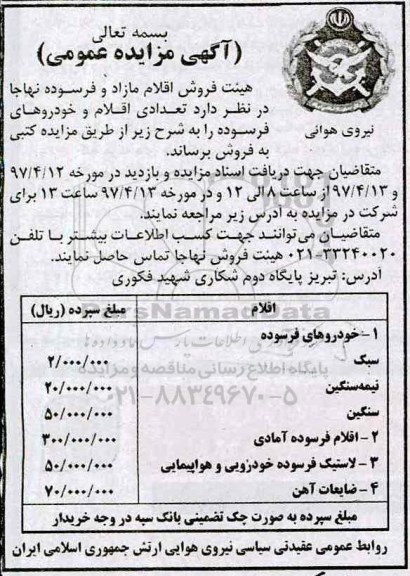 بسمه تعالی
(آگهی مزایده عمومی)
نیروی هوائی
هیئت فروش اقلام مازاد و فرسوده نهاجا
در نظر دارد تعدادی اقلام و خودروهای
فرسوده را به شرح زیر از طریق مزایده کتبی
به فروش برساند.
متقاضیان جهت دریافت اسناد مزایده و بازدید در مورخه ۹۷/۴/۱۲
و ۹۷/۴/۱۳ از ساعت ۸ الی ۱۲ و در مورخه ۹۷/۴/۱۳ ساعت ۱۳ برای
شرکت در مزایده به آدرس زیر مراجعه نمایند.
متقاضیان می‌توانند جهت کسب اطلاعات بیشتر با تلفن
۰۲۱-۳۳۲۴۰۰۲۰ هیئت فروش نهاجا تماس حاصل نمایند.
آدرس: تبریز پایگاه دوم شکاری شهید فکوری
اقلام مبلغ سپرده (ریال)
۱- خودروهای فرسوده
سبک ۲/۰۰۰/۰۰۰
نیمه‌سنگین ۲۰/۰۰۰/۰۰۰
سنگین ۵۰/۰۰۰/۰۰۰
۲- اقلام فرسوده آمادی ۳۰۰/۰۰۰/۰۰۰
۳- لاستیک فرسوده خودرویی و هواپیمایی ۵۰/۰۰۰/۰۰۰
۴- ضایعات آهن ۷۰/۰۰۰/۰۰۰
مبلغ سپرده به صورت چک تضمینی بانک سپه در وجه خریدار
روابط عمومی عقیدتی سیاسی نیروی هوایی ارتش جمهوری اسلامی ایران
ParsNamadData
پایگاه اطلاع رسانی مناقصه و مزایده
۰۲۱-۸۸۳۴۹۶۷۰-۵